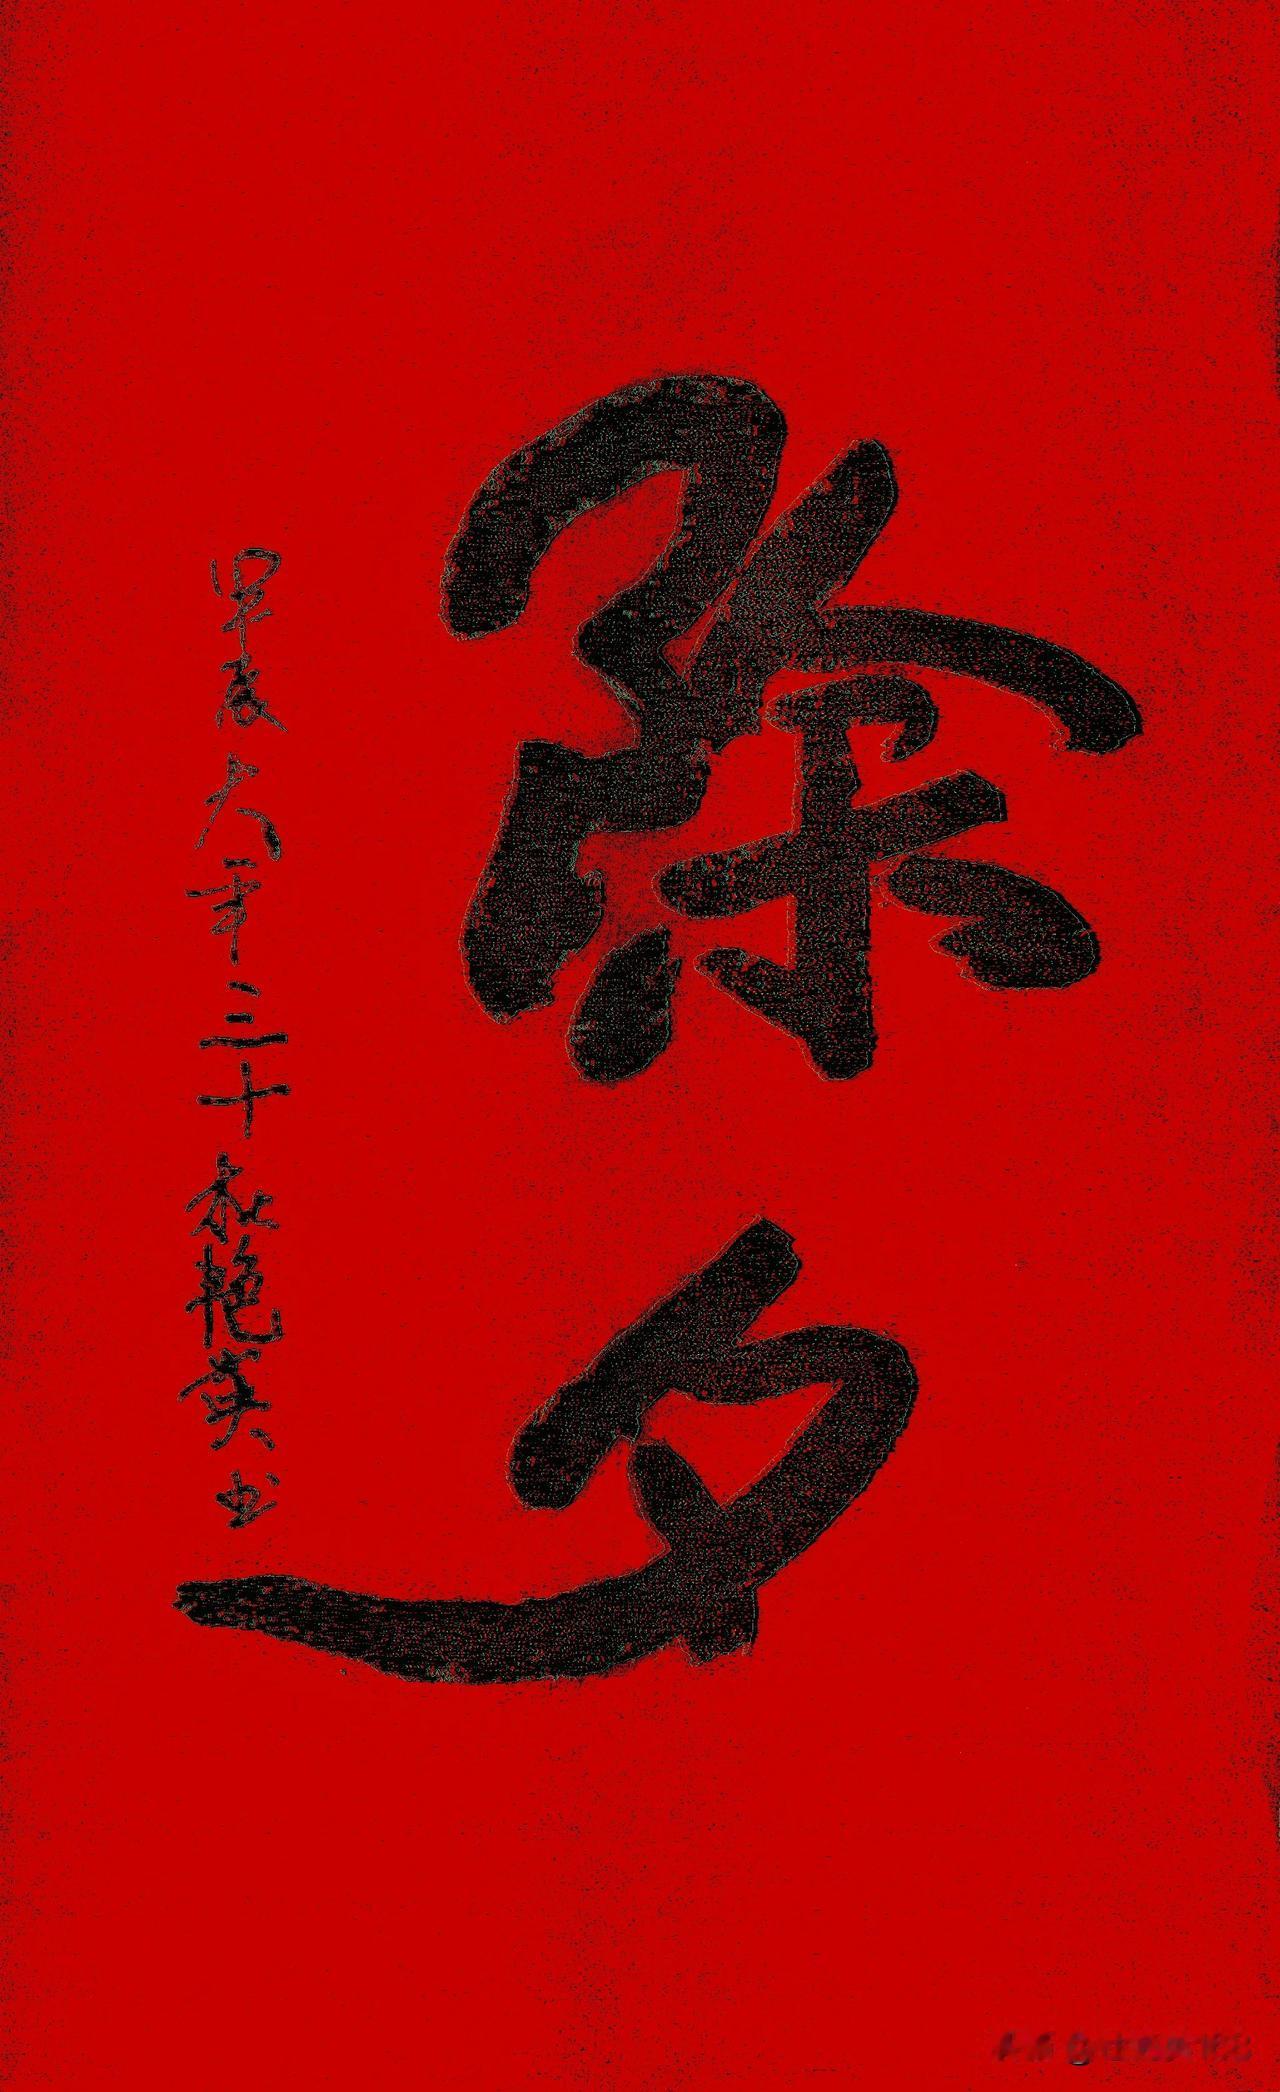 除夕
甲辰大年三十 杜艳英书